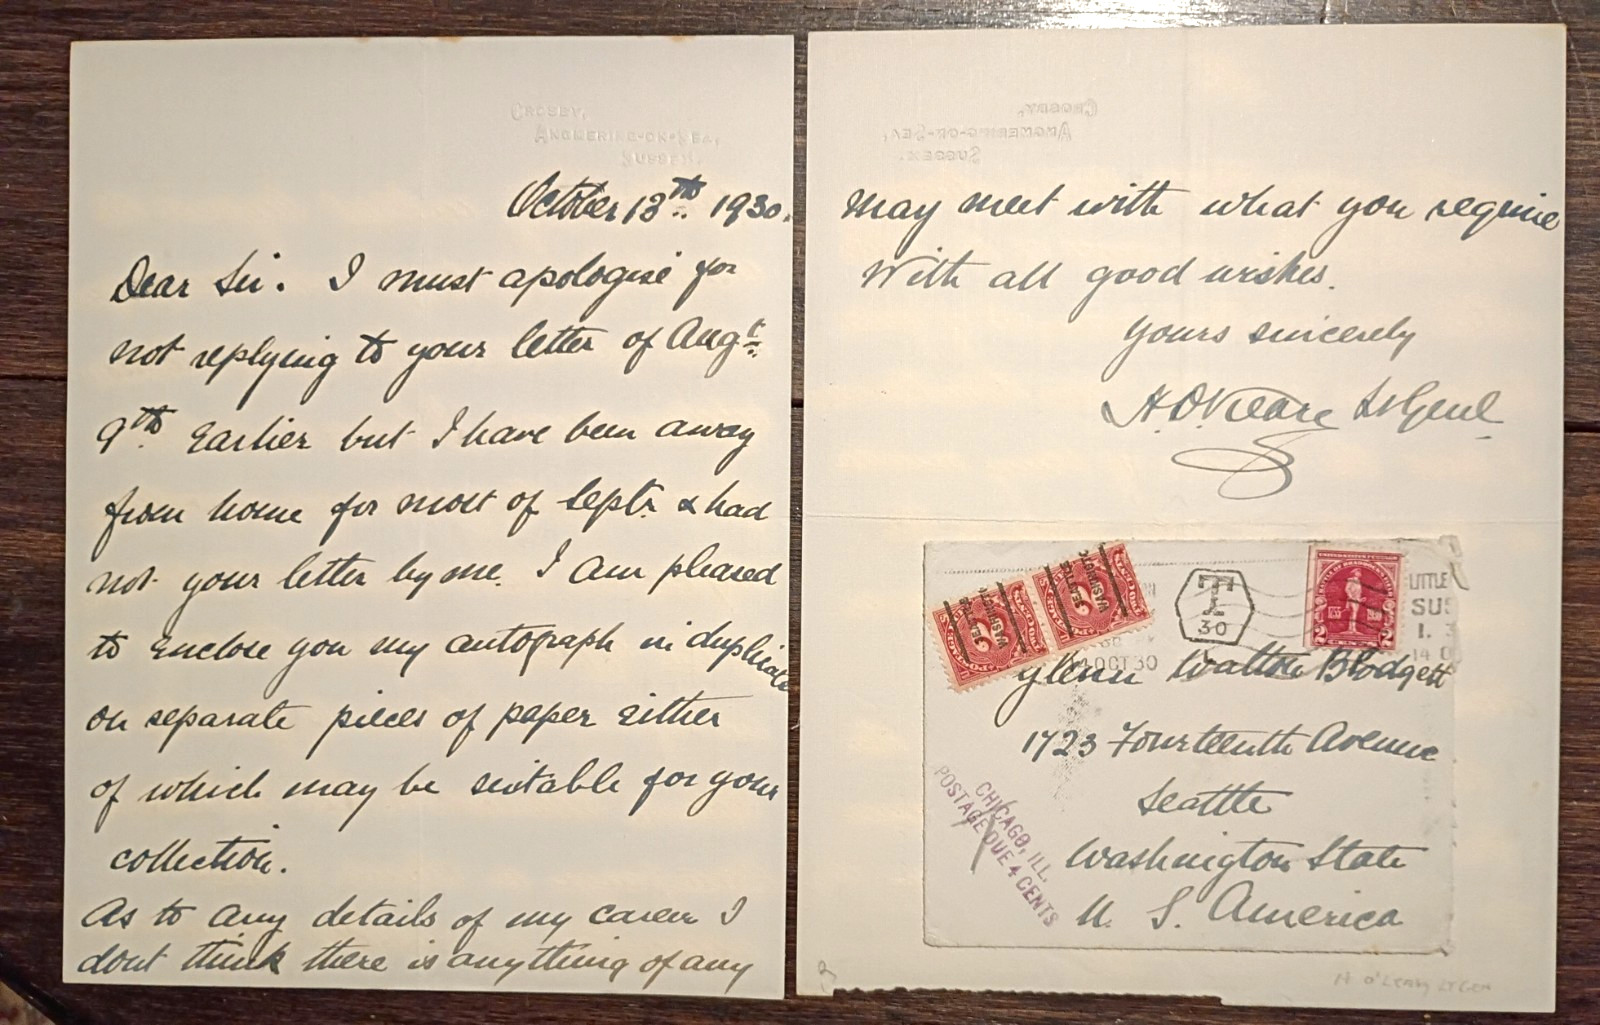 CROSBY,
ANGMERING-ON-SEA,
SUSSEX.
October 13th 1930.
Dear Sir. I must apologise for
not replying to your letter of Augt.
9th Earlier but I have been away
from home for most of Septr & had
not your letter by me. I am pleased
to Enclose you my autograph in duplicate
on separate pieces of paper either
of which may be suitable for your
collection.
As to any details of my career I
dont think there is anything of any
CROSBY,
ANGMERING-ON-SEA,
SUSSEX.
may meet with what you require
With all good wishes.
Yours sincerely
LtGenl
SEATTLE
WASHINGTON
2
SEATTLE
WASHINGTON
2
T
30
2 CENTS 2
LITTLE
SUS
14 OCT 30
14 O
Glenn Walton Blodgett
1723 Fourteenth Avenue
Seattle
Washington State
U. S. America
CHICAGO, ILL.
POSTAGE DUE 4 CENTS
H O'LEARY LT GEN